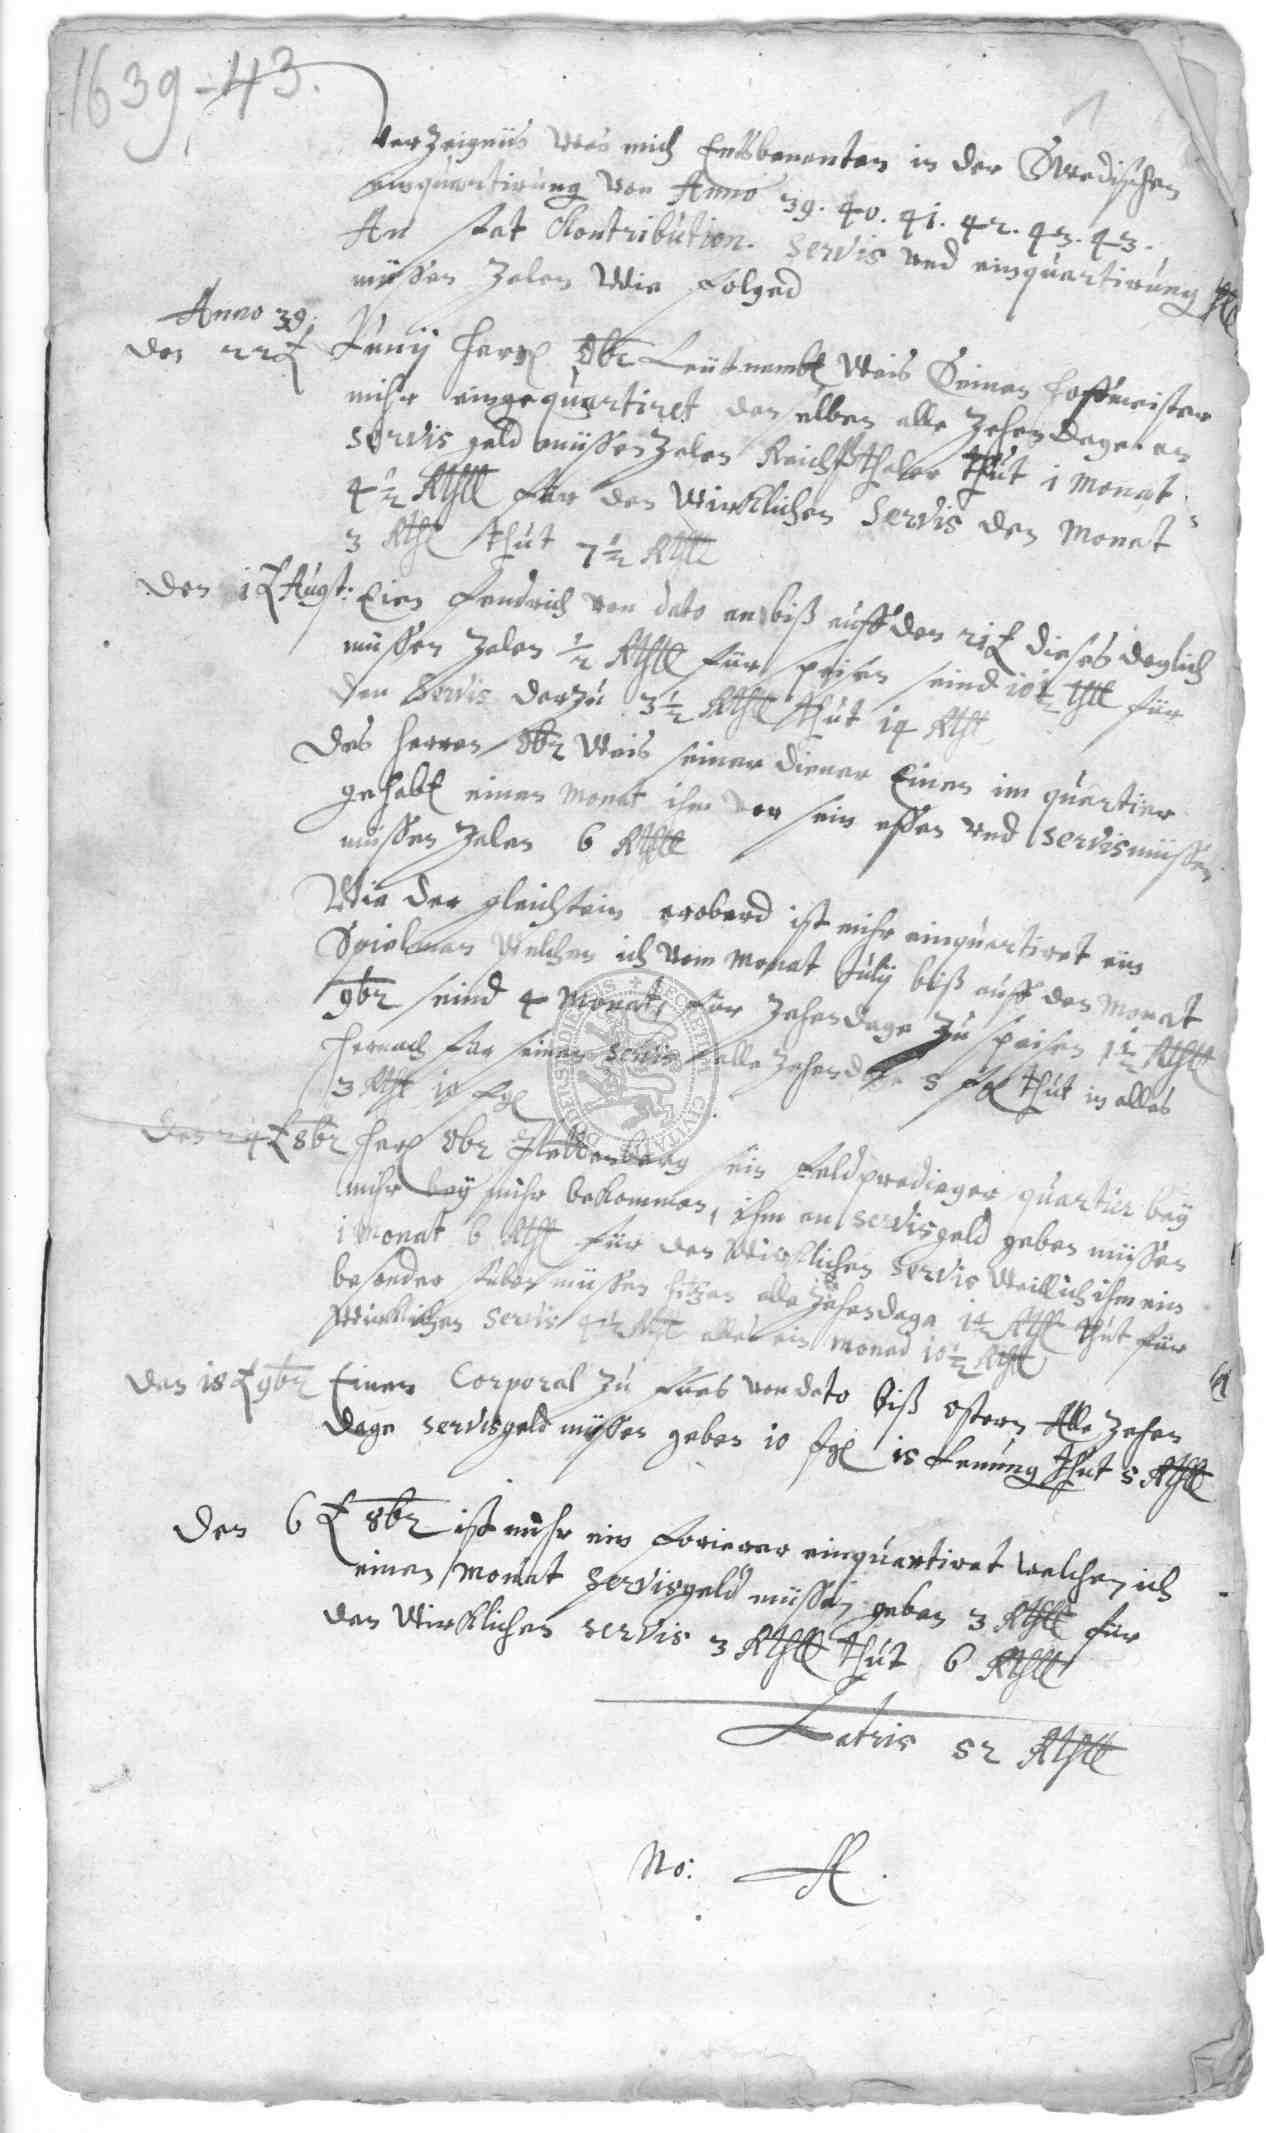 1639-43.
1
Verzeignüs Was mich Endsbenanten in der Swedischen
einquartirung Von Anno 39. 40. 41. 42. 43. 43.
An stat Kontribution. Servis und einquartirung
müssen Zalen Wie folged
Anno 39.
den 22t Junÿ Herr Obr Leütnambt Weis Seinen Hoffmeister
mihr eingequartiret demselben alle Zehen Dage an
servis geld müssen Zalen Reichsthaler thut 1 Monat
4½ Rthll für den Wirklichen Servis den Monat
3 Rthl thut 7½ Rthll
den 1t Augst: Eien Fendrich von dato an biß auff den 21t dieses deglich
müssen Zalen ½ Rthll für speisen seind 10½ thll für
den Servis darzu 3½ Rthll thut 14 Rthl
Des Herren Obr Weis seiner Diener Einen im quartier
gehabt einen Monat ihm vor sein essen und servis müssen
müssen Zalen 6 Rthll
Wie der gleichstein eroberd ist mihr einquartiret ein
Spielman Welchen ich vom Monat Julÿ biß auff den Monat
9br seind 4 Monat, für Zehen dage Zu speisen 1½ Rthll
hernach für seinen servis alle Zehen dage 5 sgl thut in alles
3 Rthl 10 sgl
den 24t 8br Herr Obr Plettenberg sein Feldprediger quartier beÿ
mihr beÿ mihr bekommen, ihm an servisgeld geben müssen
1 Monat 6 Rthl für den Wirklichen servis Weill ich ihm ein
besonder stuben müssen hitzen alle Zehen dage 1½ Rthl thut für
Wirklichen Servis 4½ Rthl alles ein Monad 10½ Rthl
den 18t 9br Einen Corporal Zu Fues von dato biß ostern Alle Zehen
dage servisgeld müssen geben 10 sgl is Lenung thut 5 Rthll
den 6t 8br ist mihr ein Forierer einquartiret Welchen ich
einen Monat servisgeld müssen geben 3 Rthll für
den Wirklichen servis 3 Rthll thut 6 Rthll
Latris 52 Rthll
No: A.